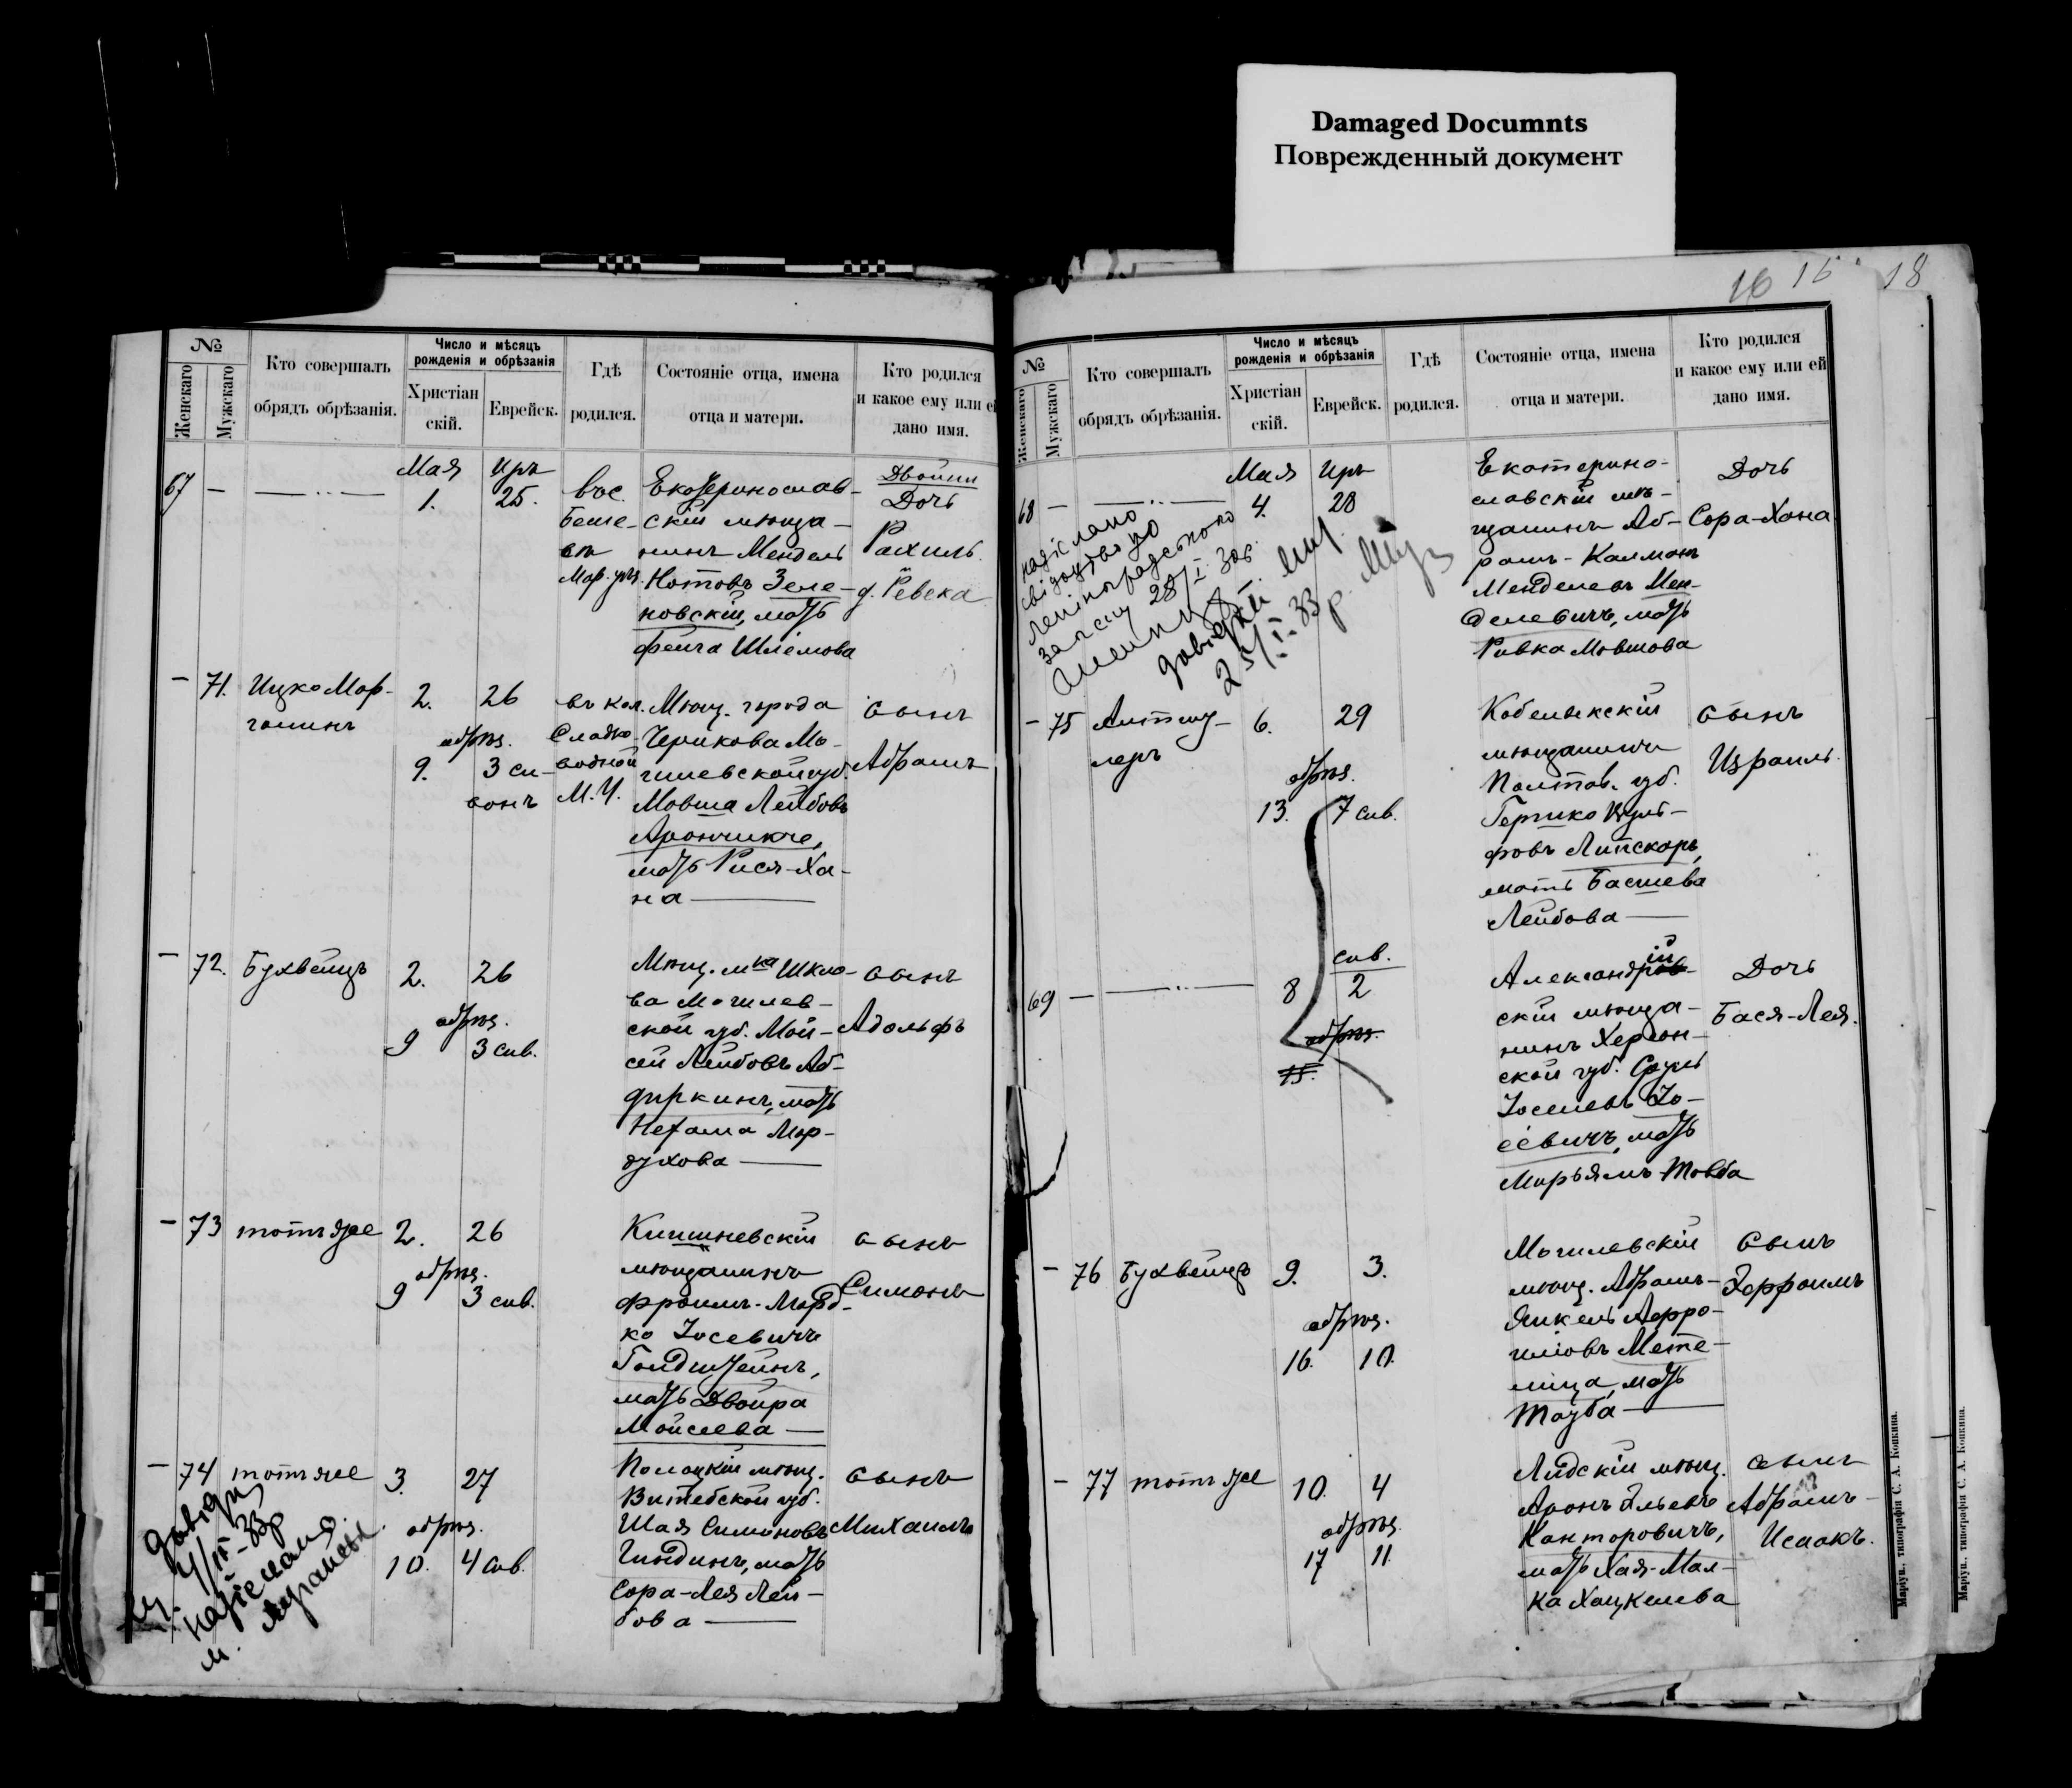 Damaged Documnts
Поврежденный документ
16 15 18
№
Женскаго
Мужскаго
Кто совершалъ
обрядъ обрѣзанія.
Число и мѣсяцъ
рожденія и обрѣзанія
Христіан
скій.
Еврейск.
Гдѣ
родился.
Состояніе отца, имена
отца и матери.
Кто родился
и какое ему или ей
дано имя.
67 —
Мая Иръ
1. 25.
вос.
Беше-
въ
Мар. уѣз.
Екатеринослав-
скій мѣща-
нинъ Мендель
Нотовъ Зеле-
новскій, мать
Фейга Шлемова
Двойни
Дочь
Рахиль.
д. Ревека
— 71.
Ицко Мар-
голинъ
2. 26
обрѣз.
9. 3 си-
вонъ
въ кол.
Сладко-
водной
М. У.
Мѣщ. города
Черикова Мо-
гилевской губ.
Мовша Лейбовъ
Арончикъ,
мать Рися-Ха-
на
сынъ
Абрамъ
— 72.
Бухвейцъ
2. 26
обрѣз.
9 3 сив.
Мѣщ. м-ка Шкло-
ва Могилев-
ской губ. Мой-
сей Лейбовъ Аб-
диркинъ, мать
Нехама Мор-
духова
сынъ
Адольфъ
— 73
тотъ же
2. 26
обрѣз.
9 3 сив.
Кишиневскій
мѣщанинъ
Фроимъ-Морд-
ко Іосевичъ
Гольдштейнъ,
мать Двойра
Мойсеева
сынъ
Симонъ
— 74
тотъ же
3. 27
обрѣз.
10. 4 сив.
Полоцкій мѣщ.
Витебской губ.
Шая Симоновъ
Гиндинъ, мать
Сора-Лея Лей-
бова
сынъ
Михаилъ
надіслано
№
Женскаго
Мужскаго
Кто совершалъ
обрядъ обрѣзанія.
Число и мѣсяцъ
рожденія и обрѣзанія
Христіан
скій.
Еврейск.
Гдѣ
родился.
Состояніе отца, имена
отца и матери.
Кто родился
и какое ему или ей
дано имя.
68 —
Мая Иръ
4. 28
Екатерино-
славскій мѣ-
щанинъ Аб-
рамъ-Калманъ
Менделевъ Мен-
делевичъ, мать
Ривка Мовшова
Дочь
Сора-Хана
надіслано
свідоцтво до
— 75
6. 29
обрѣз.
13. 7 сив.
Кобелякскій
мѣщанинъ
Полтав. губ.
Лейбова
сынъ
Израиль.
69 —
сив.
8 2
обрѣз.
15.
Александрій
скій мѣща-
нинъ Херсон-
ской губ. Сруль
Іоселевъ Іо-
севичъ, мать
Марьямъ-Товба
Дочь
Бася-Лея.
— 76
Бухвейцъ
9. 3.
обрѣз.
16. 10.
Могилевскій
мѣщ. Абрамъ-
Метe-
лица, мать
Тауба
сынъ
— 77
тотъ же
10. 4
обрѣз.
17 11.
Лидскій мѣщ.
Аронъ Эльевъ
Канторовичъ,
мать Хая-Мал-
ка Хацкелева
сынъ
Абрамъ-
Исаакъ.
Маріуп., типографія С. А. Копкина.
Маріуп., типографія С. А. Копкина.